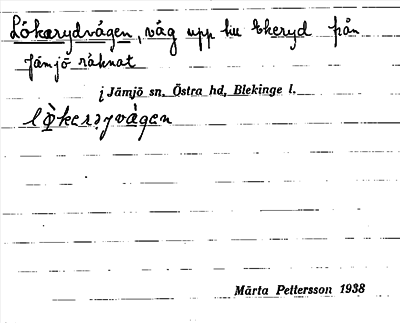 Lökarydvägen, väg upp till Ekeryd från
Jämjö räknat
i Jämjö sn, Östra hd, Blekinge l.
Märta Pettersson 1938